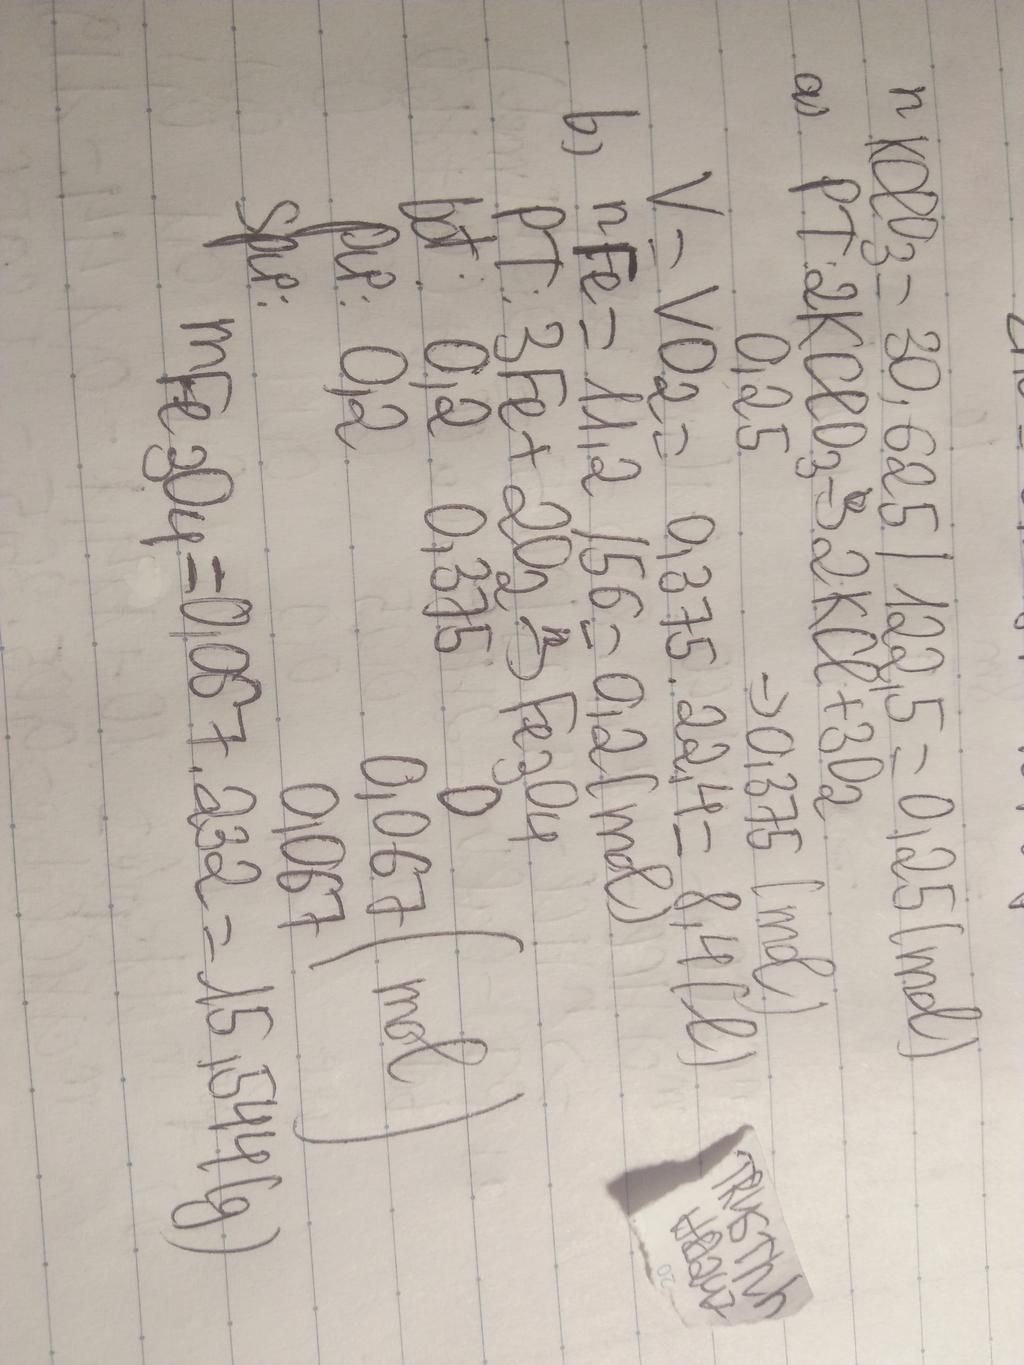 nKClO3 = 30,625 / 122,5 = 0,25 (mol)
a) PT: 2KClO3 → 2KCl + 3O2
0,25 → 0,375 (mol)
V = VO2 = 0,375 . 22,4 = 8,4 (l)
b) nFe = 11,2 / 56 = 0,2 (mol)
PT: 3Fe + 2O2 → Fe3O4
bđ: 0,2 0,375 0
pư: 0,2 0,067 (mol)
spư: 0,067
mFe3O4 = 0,067 . 232 = 15,544 (g)